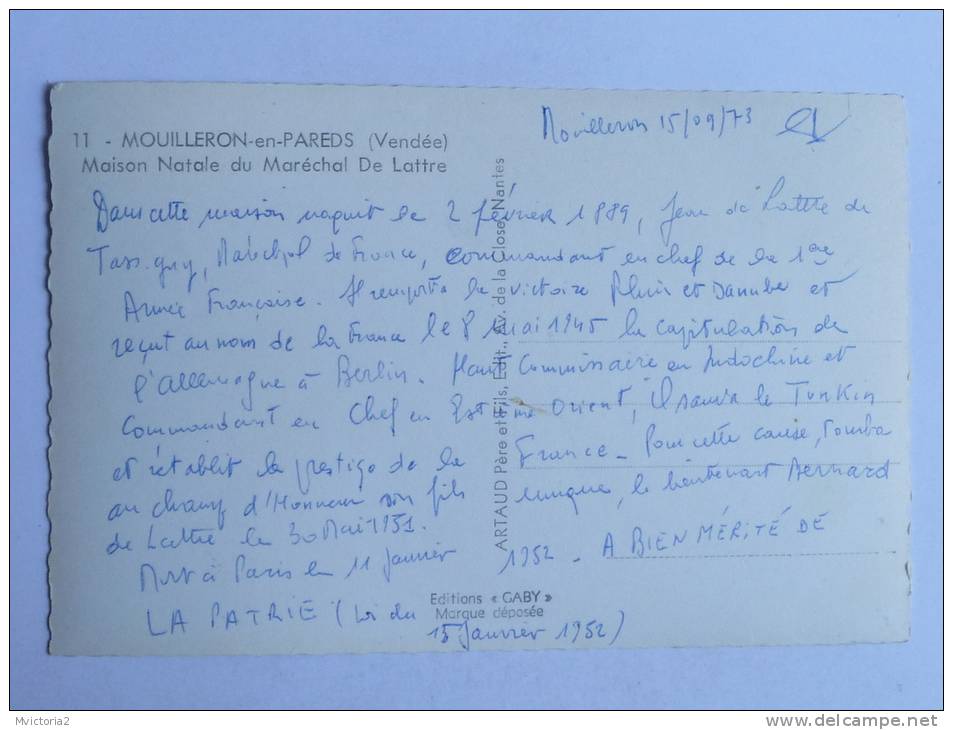 Mouilleron 15/09/73
11 - MOUILLERON-en-PAREDS (Vendée)
Maison Natale du Maréchal De Lattre
Dans cette maison naquit le 2 février 1889, Jean de Lattre de
Tassigny, Maréchal de France, commandant en chef de la 1ère
Armée Française. Il remporta la victoire Rhin et Danube et
reçut au nom de la France le 8 mai 1945 la capitulation de
l'Allemagne à Berlin. Haut Commissaire en Indochine et
Commandant en Chef en Extrême Orient, il sauva le Tonkin
et rétablit le prestige de la France - Pour cette cause, tomba
au champ d'Honneur son fils unique, le lieutenant Bernard
de Lattre le 30 Mai 1951.
Mort à Paris le 11 janvier 1952 - A BIEN MÉRITÉ DE
LA PATRIE (Loi du
15 Janvier 1952)
Editions « GABY »
Marque déposée
ARTAUD Père et Fils, Edit., Av. de la Close, Nantes
Mvictoria2
www.delcampe.net